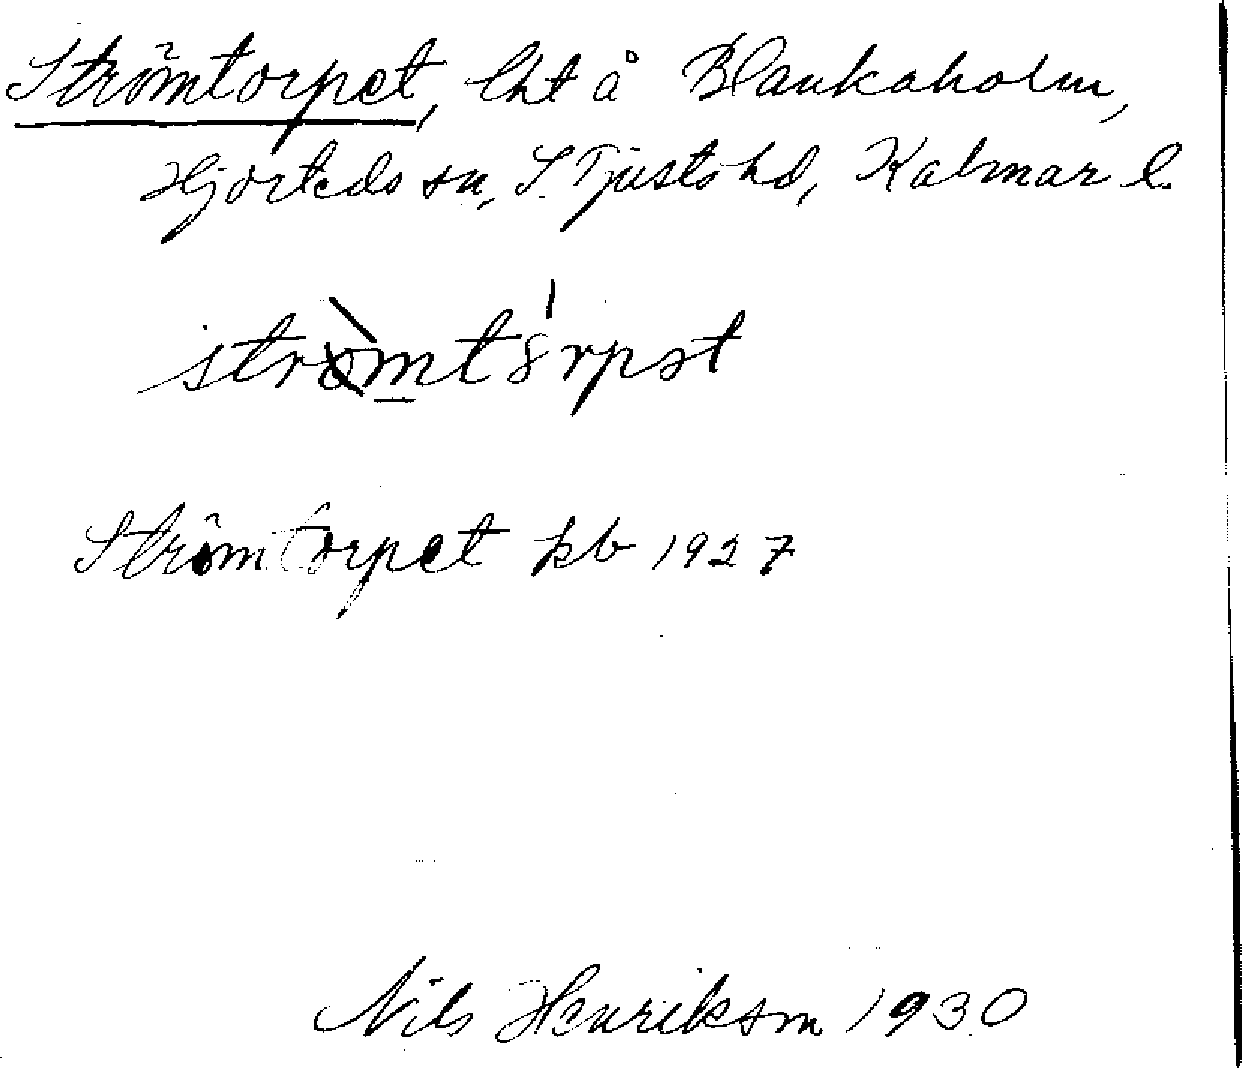 Strömtorpet, lht å Blankaholm,
Hjorteds sn, S. Tjusts hd, Kalmar l.
Strömtorpet kb 1927
Nils Henrikson 1930